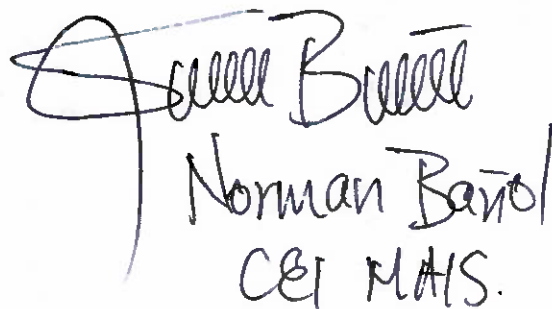 Norman Bañol
CEI MAIS.